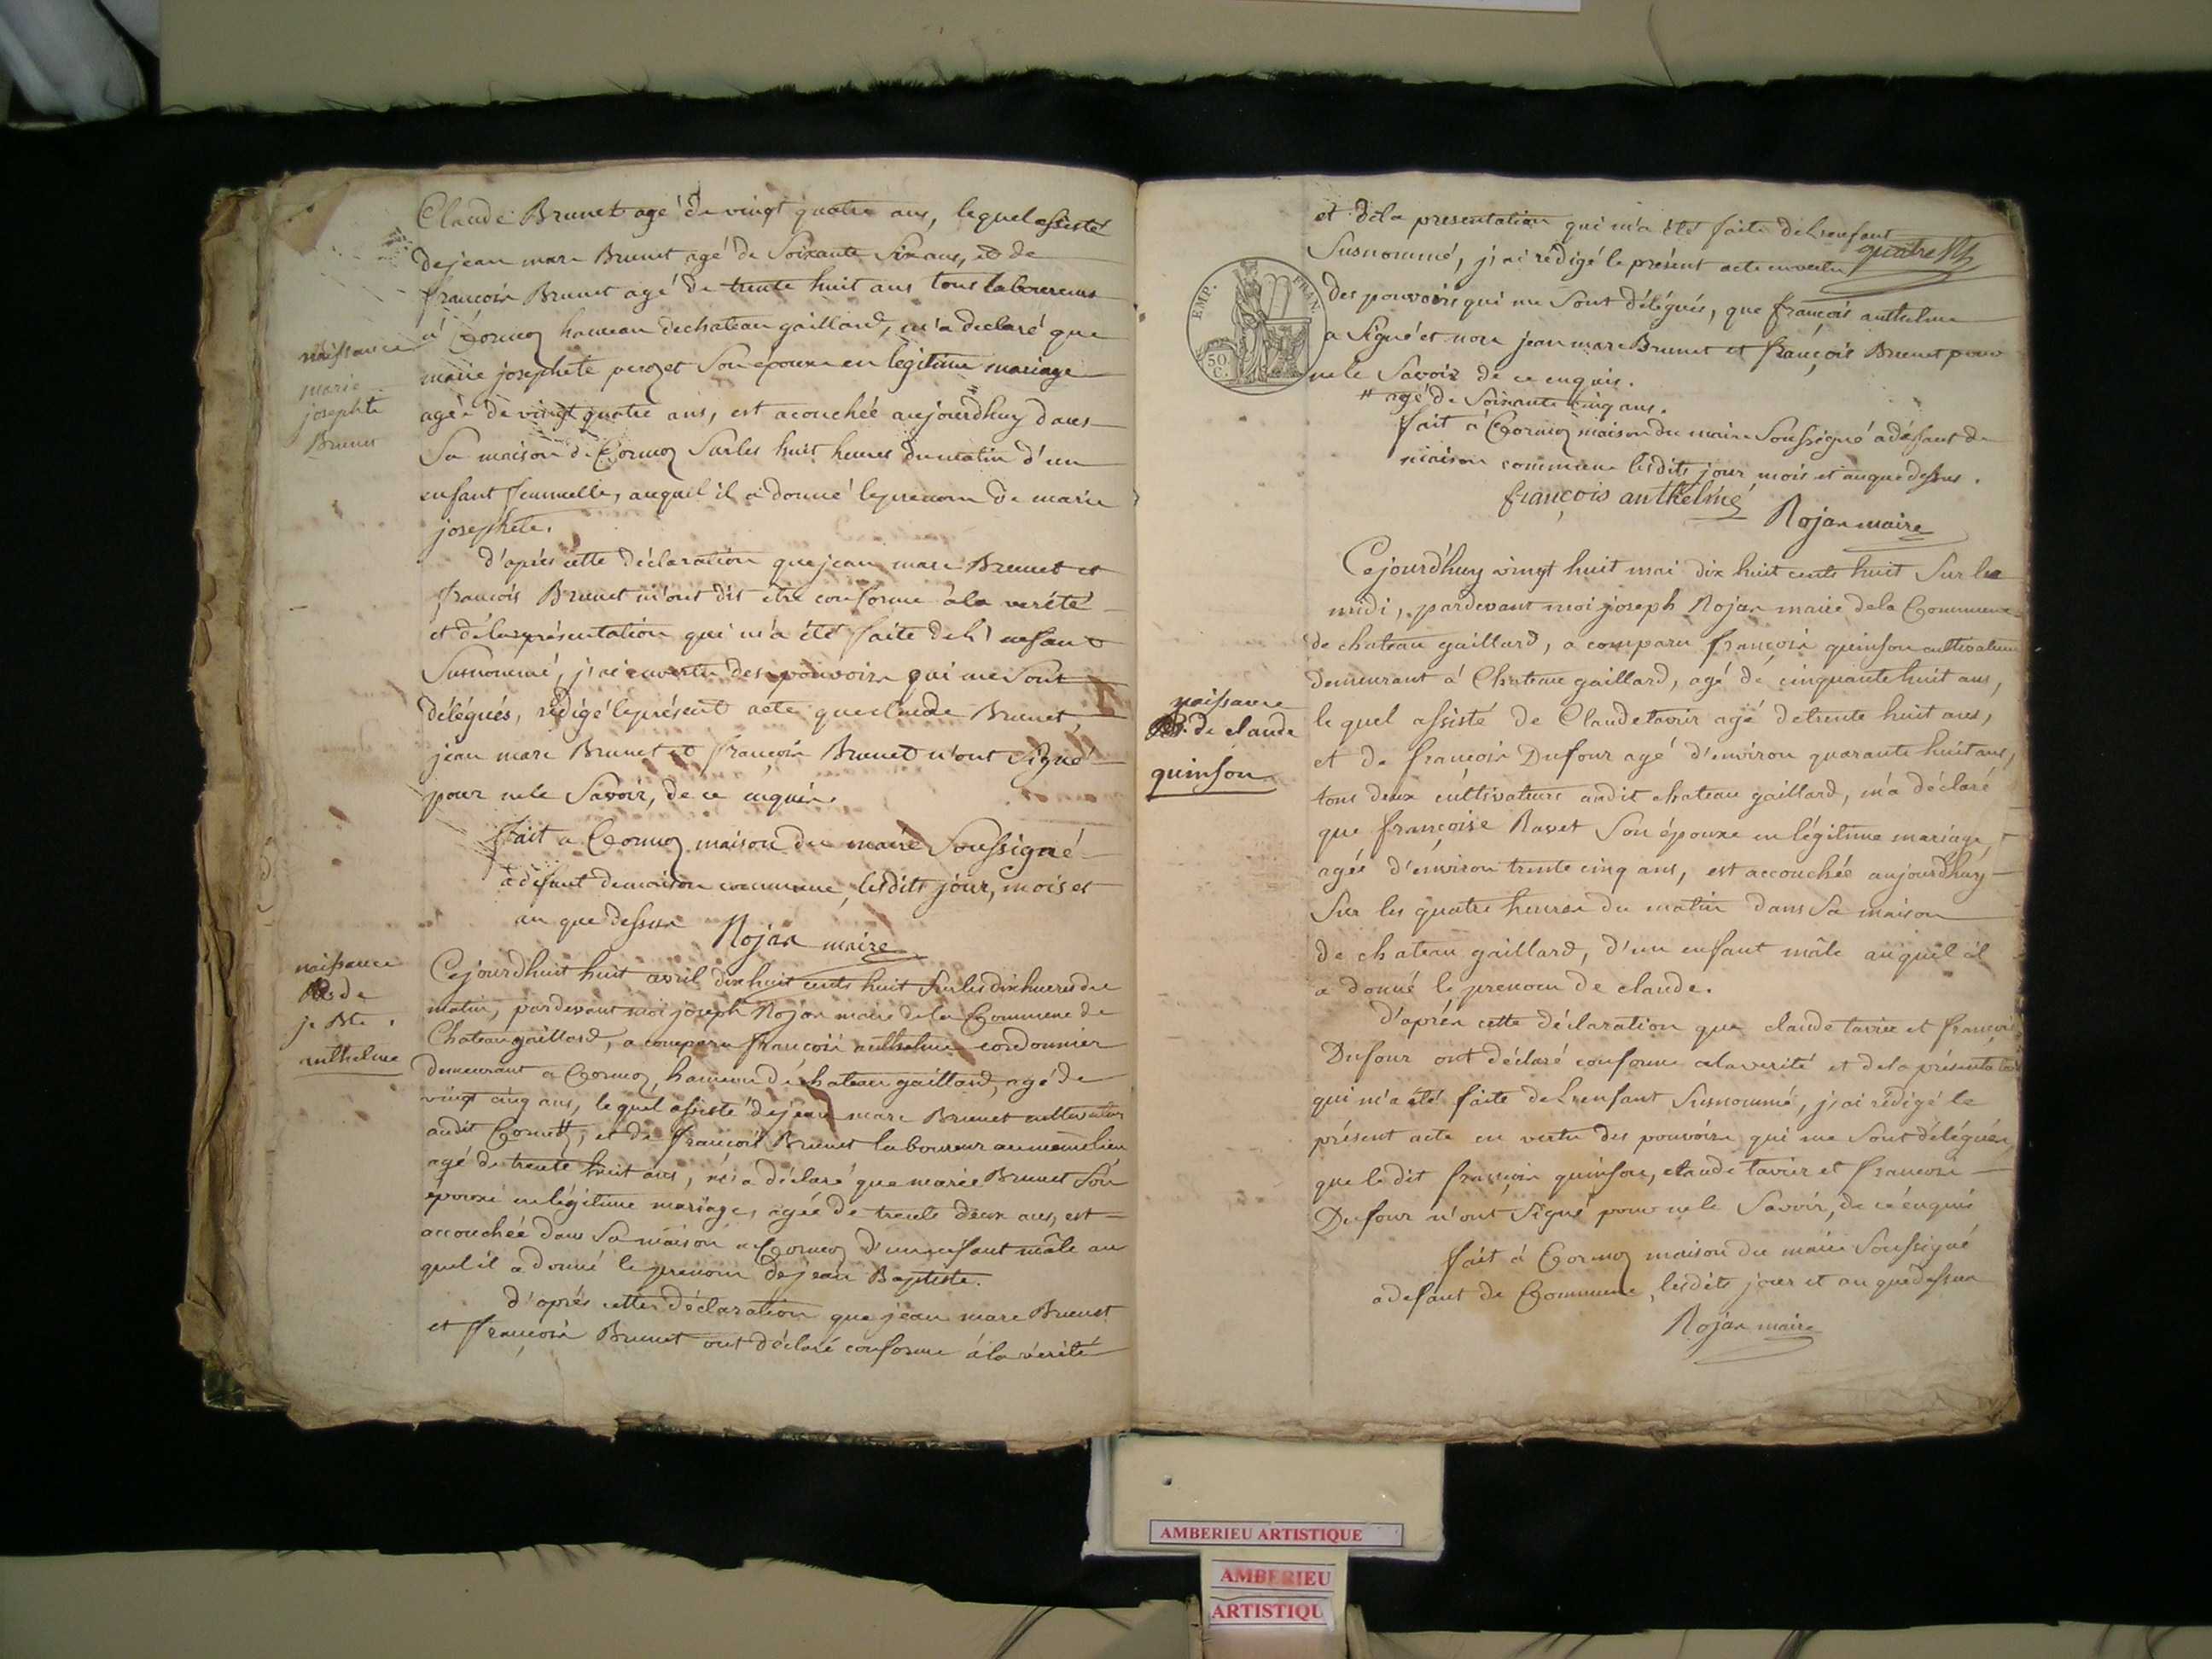 Claude Brunet agé de vingt quatre ans, lequel assisté
de jean marc Brunet agé de Soixante Six ans, et de
françois Brunet agé de trente huit ans tous laboureurs
a Cormoz hameau de chateau gaillard, m'a declaré que
marie josephete perozet Son épouse en légitime mariage
agée de vingt quatre ans, est acouchée aujourdhuy dans
Sa maison de Cormoz Sur les huit heures du matin d'un
enfant femmelle, auquel il a donné le prenom de marie
josephete.
naissance
marie
josephte
Brunet
d'après cette déclaration que jean marc Brunet et
françois Brunet m'ont dit etre conforme à la verité
et de la présentation qui m'a été faite de l' enfant
Susnommé, j'ai en vertu des pouvoirs qui me Sont
délégués, rédigé le présent acte que claude Brunet
jean marc Brunet et françois Brunet n'ont Signé
pour ne le Savoir, de ce enquis.
fait a Cormoz maison du maire Soussigné
à défaut de maison commune, lesdits jour, mois et
an que dessus Rojan maire
naissance
de
je Bte
anthelme
Cejourdhuit huit avril dix huit cents huit Sur les dix heures du
matin, pardevant moi joseph Rojan maire de la Commune de
Chateau gaillard, a comparu françois anthelme cordonnier
demeurant a Cormoz, hameau de chateau gaillard, agé de
vingt cinq ans, lequel assisté de jean marc Brunet cultivateur
audit Cormoz #, et de françois Brunet laboureur au meme lieu
agé de trente huit ans, m'a déclaré que marie Brunet Son
épouse en légitime mariage, agée de trente deux ans, est
accouchée dans Sa maison a Cormoz d'un enfant mâle au
quel il a donné le prenom de jean Baptiste.
d'après cette déclaration que jean marc Brunet
et françois Brunet ont déclaré conforme à la vérité
et de la presentation qui m'a été faite de l'enfant
quatre
Susnommé, j'ai rédigé le présent acte en vertu
des pouvoirs qui me Sont délégués, que françois anthelme
a Signé et non jean marc Brunet et françois Brunet pour
ne le Savoir de ce enquis.
# agé de Soixante cinq ans.
EMP. FRAN.
50 C.
fait à Cormoz maison du maire Soussigné a défaut de
maison commune lesdits jour, mois et an que dessus.
françois anthelme
Rojan maire
Cejourdhuy vingt huit mai dix huit cents huit Sur les
midi, pardevant moi joseph Rojan maire de la Commune
de chateau gaillard, a comparu françois quinson cultivateur
demeurant à Chateau gaillard, agé de cinquante huit ans,
naissance
de claude
quinson
lequel assisté de Claude tavier agé de trente huit ans,
et de françois Dufour agé d'environ quarante huit ans,
tous deux cultivateurs audit chateau gaillard, m'a déclaré
que françoise Ravet Son épouse en légitime mariage,
agée d'environ trente cinq ans, est accouchée aujourdhuy
Sur les quatre heures du matin dans Sa maison
de chateau gaillard, d'un enfant mâle auquel il
a donné le prenom de claude.
d'après cette déclaration que claude tavier et françois
Dufour ont déclaré conforme a la verité et de la présentation
qui m'a été faite de l'enfant Susnommé, j'ai rédigé le
présent acte en vertu des pouvoirs qui me Sont délégués,
que le dit françois quinson, claude tavier et françois
Dufour n'ont Signé pour ne le Savoir, de ce enquis
fait à Cormoz maison du maire Soussigné
a defaut de Commune, lesdits jour et an que dessus
Rojan maire
AMBERIEU ARTISTIQUE
AMBERIEU
ARTISTIQU